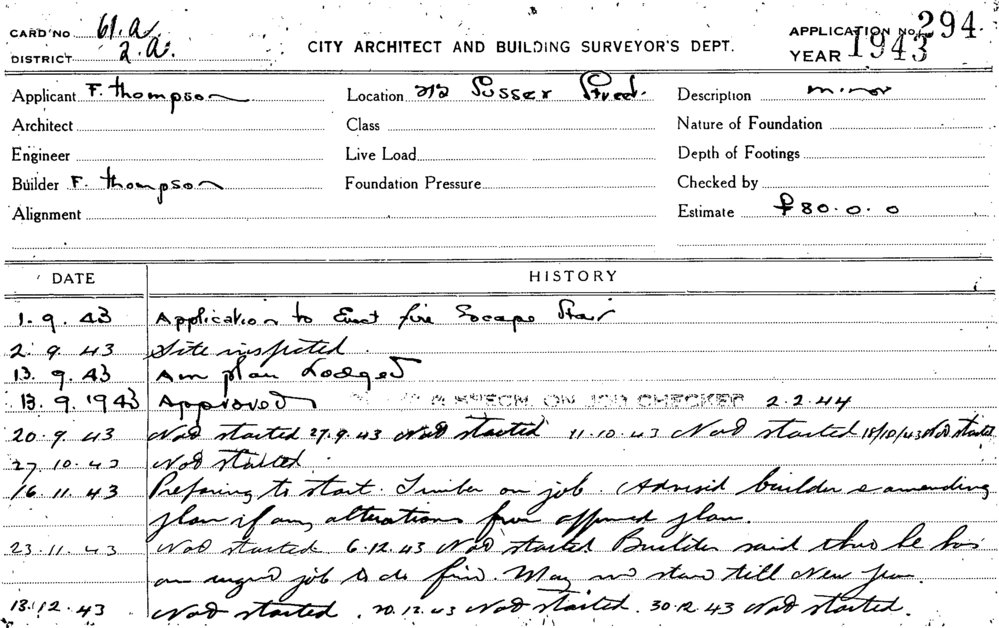 CARD No 61.a. APPLICATION No. 294
DISTRICT 2.a. CITY ARCHITECT AND BUILDING SURVEYOR'S DEPT. YEAR 1943
Applicant F. Thompson Location 212 Sussex Street. Description minor
Architect Class Nature of Foundation
Engineer Live Load Depth of Footings
Builder F. Thompson Foundation Pressure Checked by
Alignment Estimate £80.0.0
DATE HISTORY
1.9.43 Application to Erect fire Escape Stair
2.9.43 Site inspected.
13.9.43 Am plan Lodged
13.9.1943 Approved ON JOB CHECKED 2.2.44
20.9.43 Not started 27.9.43 Not started 11.10.43 Not started 18/10/43 Not started
27.10.43 Not started.
16.11.43 Preparing to start. Timber on job. Advised builder amending
plan if any alterations from approved plan.
23.11.43 Not started. 6.12.43 Not started Builder said that he has
an urgent job to do first. May not start till New Year.
13.12.43 Not started. 20.12.43 Not started. 30.12.43 Not started.